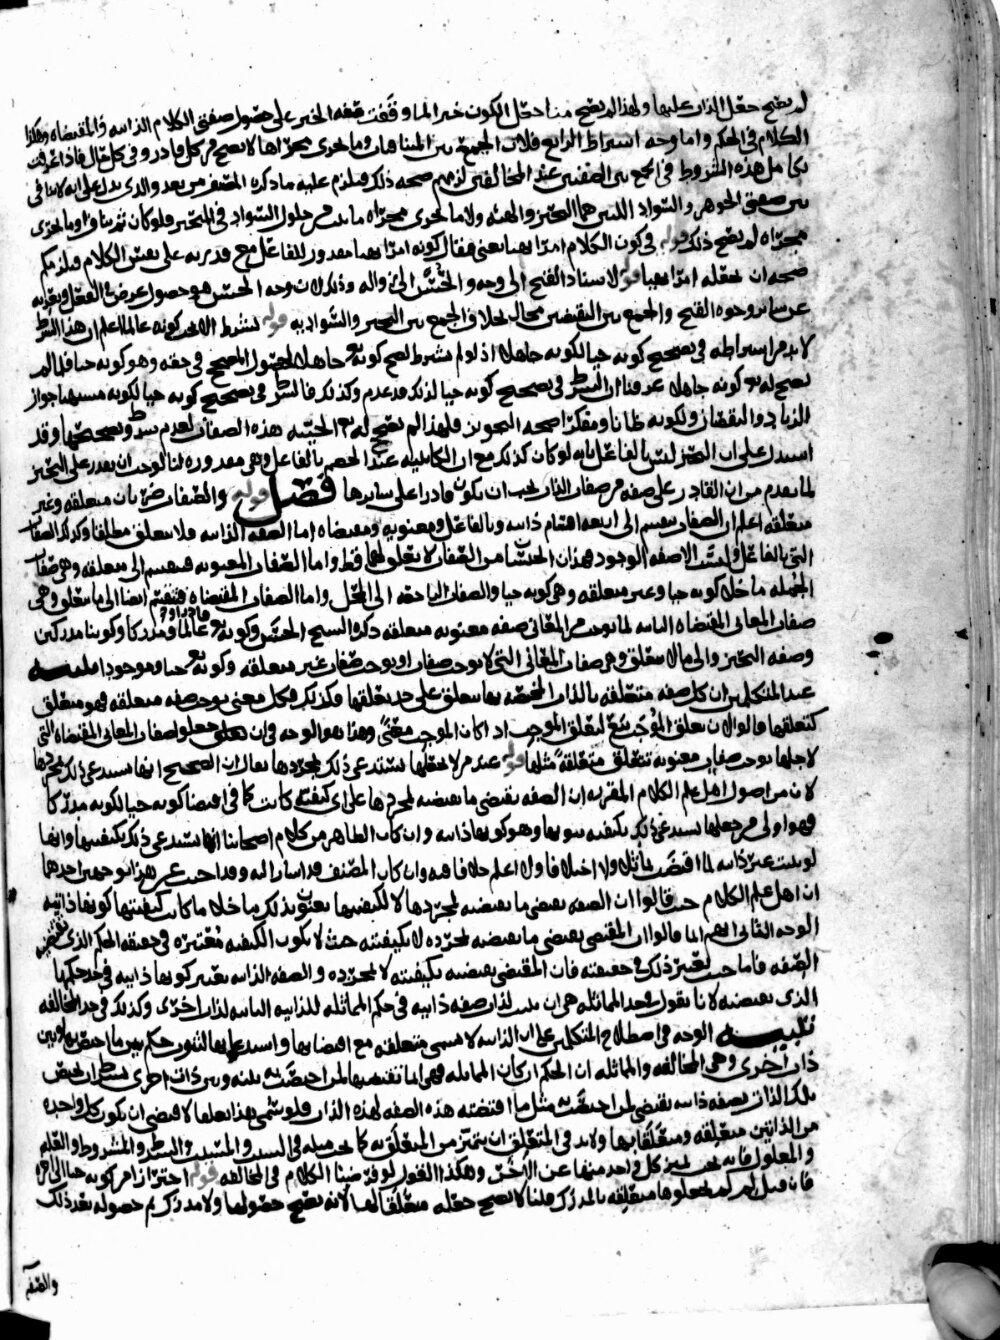 لم يصح جعل الذات عليها ولهذا لم يصح منا جعل الكون خبرا لما وقفت صفه الخبر على حصول صفتي الكلام الذاتيه والمقتضاه وهكذا
الكلام في الحكم واما وجه اشتراط الرابع فلان الجمع بين المتنافيات وما يجري مجراها لا يصح من كل قادر وفي كل حال فاذا عرفت
تكامل هذه الشروط في الجمع بين الصفتين عند المخالفين لزمهم صحه ذلك فيلزم عليه ما ذكره المصنف من بعد والذي يدل على انه لا تنافي
بين صفتي الجوهر والسواد اللتين هما التحيز والهيئه ولا ما يجري مجراه ما ثبت من حلول السواد في المتحيز فلو كان ثم تناف او ما يجري
مجراه لم يصح ذلك قوله في كون الكلام امرا نهيا يعني فيقال كونه امرا نهيا مقدور للفاعل مع قدرته على نفس الكلام فيلزمكم
صحه ان يجعله امرا نهيا قوله لاستناد القبح الى وجه والحسن الى زواله وذلك لان وجه الحسن هو حصول غرض في الفعل وتعريه
عن سائر وجوه القبح والجمع بين النقيضين محال بخلاف الجمع بين التحيز والسواديه قوله بشرط الا يجب كونه عالما اعلم ان هذا الشرط
لا بد من اشتراطه في تصحيح كونه حيا لكونه جاهلا اذ لو لم يشترط لصح كونه تع جاهلا لحصول المصحح في حقه وهو كونه حيا فلما لم
يصح له تع كونه جاهلا عرفنا ان الشرط في تصحيح كونه حيا لذلك قد عدم وكذلك فالشرط في تصحيح كونه حيا لكونه مشتهيا جواز
الزياده والنقصان ولكونه ظانا ومفكرا صحه التجويز فلهذا لم تصحح له تع الحييه هذه الصفات لعدم شرط تصحيحها وقد
استدل على ان التحيز ليس بالفاعل انه لو كان كذلك مع ان الكائنيه عند الخصم بالفاعل وهي مقدوره لنا لوجب ان نقدر على التحيز
لما تقدم من ان القادر على صفه من صفات الذات يجب ان يكون قادرا على سايرها فصل قوله والصفات ضربان متعلقه وغير
متعلقه اعلم ان الصفات تنقسم الى اربعه اقسام ذاتيه وبالفاعل ومعنويه ومقتضاه اما الصفه الذاتيه فلا تتعلق مطلقا وكذلك الصفات
التي بالفاعل وليست الا صفه الوجود فهذان الجنسان من الصفات لا تعلق لهما قط واما الصفات المعنويه فتنقسم الى متعلقه وهي صفات
الجمله ما خلا كونه حيا وغير متعلقه وهي كونه حيا والصفات الراجعه الى المحل واما الصفات المقتضاه فتنقسم ايضا الى ما يتعلق وهي
صفات المعاني المقتضاه الثابته لما يوجب من المعاني صفه معنويه متعلقه ذكره الشيخ الحسن وكونه تع عالما وقادرا ومدركا وكوننا مدركين
وصفه التحيز والى ما لا يتعلق وهي صفات المعاني التي لا توجب صفات او توجب صفات غير متعلقه وكونه تع حيا وموجودا تنبيه
عند المتكلمين ان كل صفه متعلقه بالذات المختصه بها تتعلق على حد تعلقها وكذلك فكل معنى يوجب صفه متعلقه فهو متعلق
كتعلقها قالوا لان تعلق الموجب تبع لتعلق الموجب اذا كان الموجب معنى وهذا هو الوجه في ان جعلوا لصفات المعاني المقتضاه التي
لاجلها توجب صفات معنويه تتعلق متعلقه مثلها قوله عند من لا يجعلها تستدعي ذلك بمجردها يقال ان الصحيح انها تستدعي ذلك بمجردها
لان من اصول اهل علم الكلام المقرره ان الصفه تقتضي ما تقتضيه لمجردها على اي كيفيه كانت كما في اقتضا كونه حيا لكونه مدركا
فهو اولى من جعلها تستدعي ذلك بكيفيه ثبوتها وهو كونها ذاتيه وان كان الظاهر من كلام اصحابنا انها تستدعي ذلك بكيفيتها وانها
لو ثبتت غير ذاتيه لما اقتضت تماثلا ولا اختلافا ولا اعلم خلافا فيه وان كان المصنف قد اشار اليه وقد اجيب عن هذا بوجهين احدهما
ان اهل علم الكلام حيث قالوا ان الصفه تقتضي ما تقتضيه لمجردها لا لكيفيتها يعنون بذلك ما خلا ما كانت كيفيتها كونها ذاتيه
الوجه الثاني انهم انما قالوا ان المقتضي يقتضي ما يقتضيه لمجرده لا بكيفيته حيث لا تكون الكيفيه معتبره في حقيقه الحكم الذي تقتضيه
الصفه فاما حيث تعتبر ذلك في حقيقته فان المقتضي يقتضيه بكيفيته لا لمجرده والصفه الذاتيه تعتبر كونها ذاتيه في حد حكمها
الذي تقتضيه لانا نقول في حد المماثله هي ان تثبت لذات صفه ذاتيه في حكم المماثله للذاتيه الثابته لذات اخرى وكذلك في حد المخالفه
تنبيه الوجه في اصطلاح المتكلمين على ان الذاتيه لا تسمى متعلقه مع اقتضايها واستدعايها لثبوت حكم بين ما اختص بها وبين
ذات اخرى وهي المخالفه والمماثله ان الحكم ان كان المماثله فهي انما تقتضيها لمن اختصت به بينه وبين ذات اخرى بشرط ان تختص
تلك الذات بصفه ذاتيه تقتضي لمن اختصت به مثل ما اقتضته هذه الصفه لهذه الذات فلو سمي هذا تعلقا لاقتضى ان تكون كل واحده
من الذاتين متعلقه ومتعلقا بها ولا بد في المتعلق ان يتميز من المتعلق به كما يجب مثله في السبب والمسبب والشرط والمشروط والعله
والمعلول فانه يجب تميز كل واحد منهما عن الاخر وهكذا القول لو فرضنا الكلام في المخالفه قوله احترازا من كونه حيا الى اخره
فان قيل لم لم يجعلوها متعلقه بالمدرك قلنا لا يصح جعله متعلقا لها لانه تصحح حصولها ولا مدرك ثم حصوله بعد ذلك
والصفه